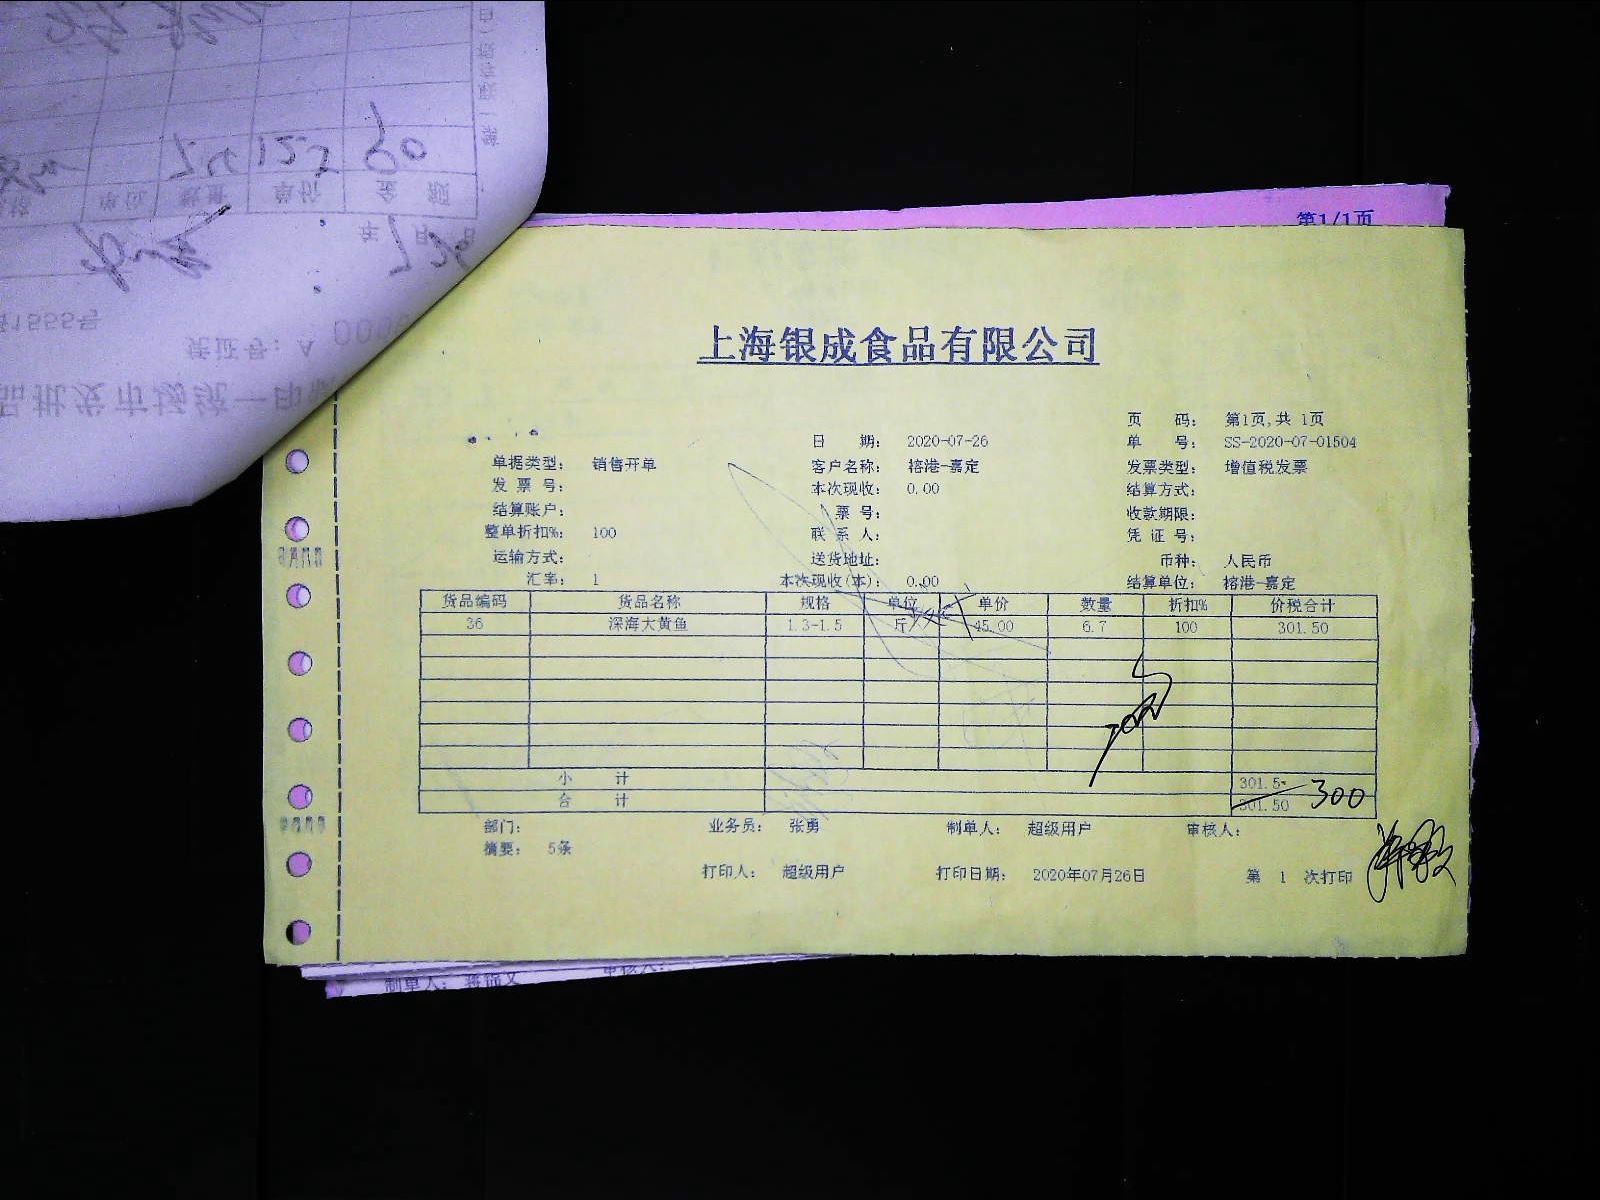 第1/1页
上海银成食品有限公司
页 码: 第1页,共 1页
日 期: 2020-07-26 单 号: SS-2020-07-01504
单据类型: 销售开单 客户名称: 榕港-嘉定 发票类型: 增值税发票
发 票 号: 本次现收: 0.00 结算方式:
结算账户: 票 号: 收款期限:
整单折扣%: 100 联 系 人: 凭 证 号:
运输方式: 送货地址: 币种: 人民币
汇率: 1 本次现收(本): 0.00 结算单位: 榕港-嘉定
货品编码 货品名称 规格 单位 单价 数量 折扣% 价税合计
36 深海大黄鱼 1.3-1.5 斤 45.00 6.7 100 301.50
小 计 301.5
合 计 301.50 300
部门: 业务员: 张勇 制单人: 超级用户 审核人:
摘要: 5条
打印人: 超级用户 打印日期: 2020年07月26日 第 1 次打印
制单人:
审核人:
品批发市场统一印
凭证号: A 000
41555号
年 月 日
单位 数量 单价 金 额